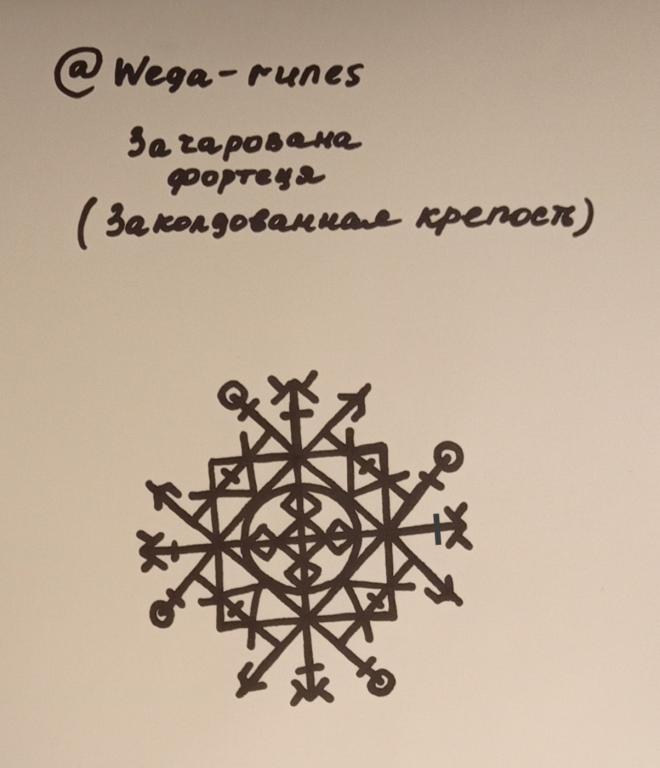 @ Wega-runes
Зачарована
фортеця
(Заколдованная крепость)